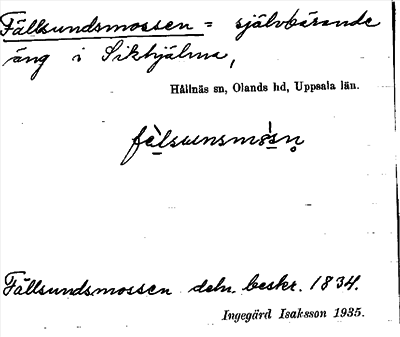 Fällsundsmossen = självbärande
äng i Sikhjälma,
Hållnäs sn, Olands hd, Uppsala län.
fèlsunsmòsn̥
Fällsundsmossen deln. beskr. 1834.
Ingegärd Isaksson 1935.